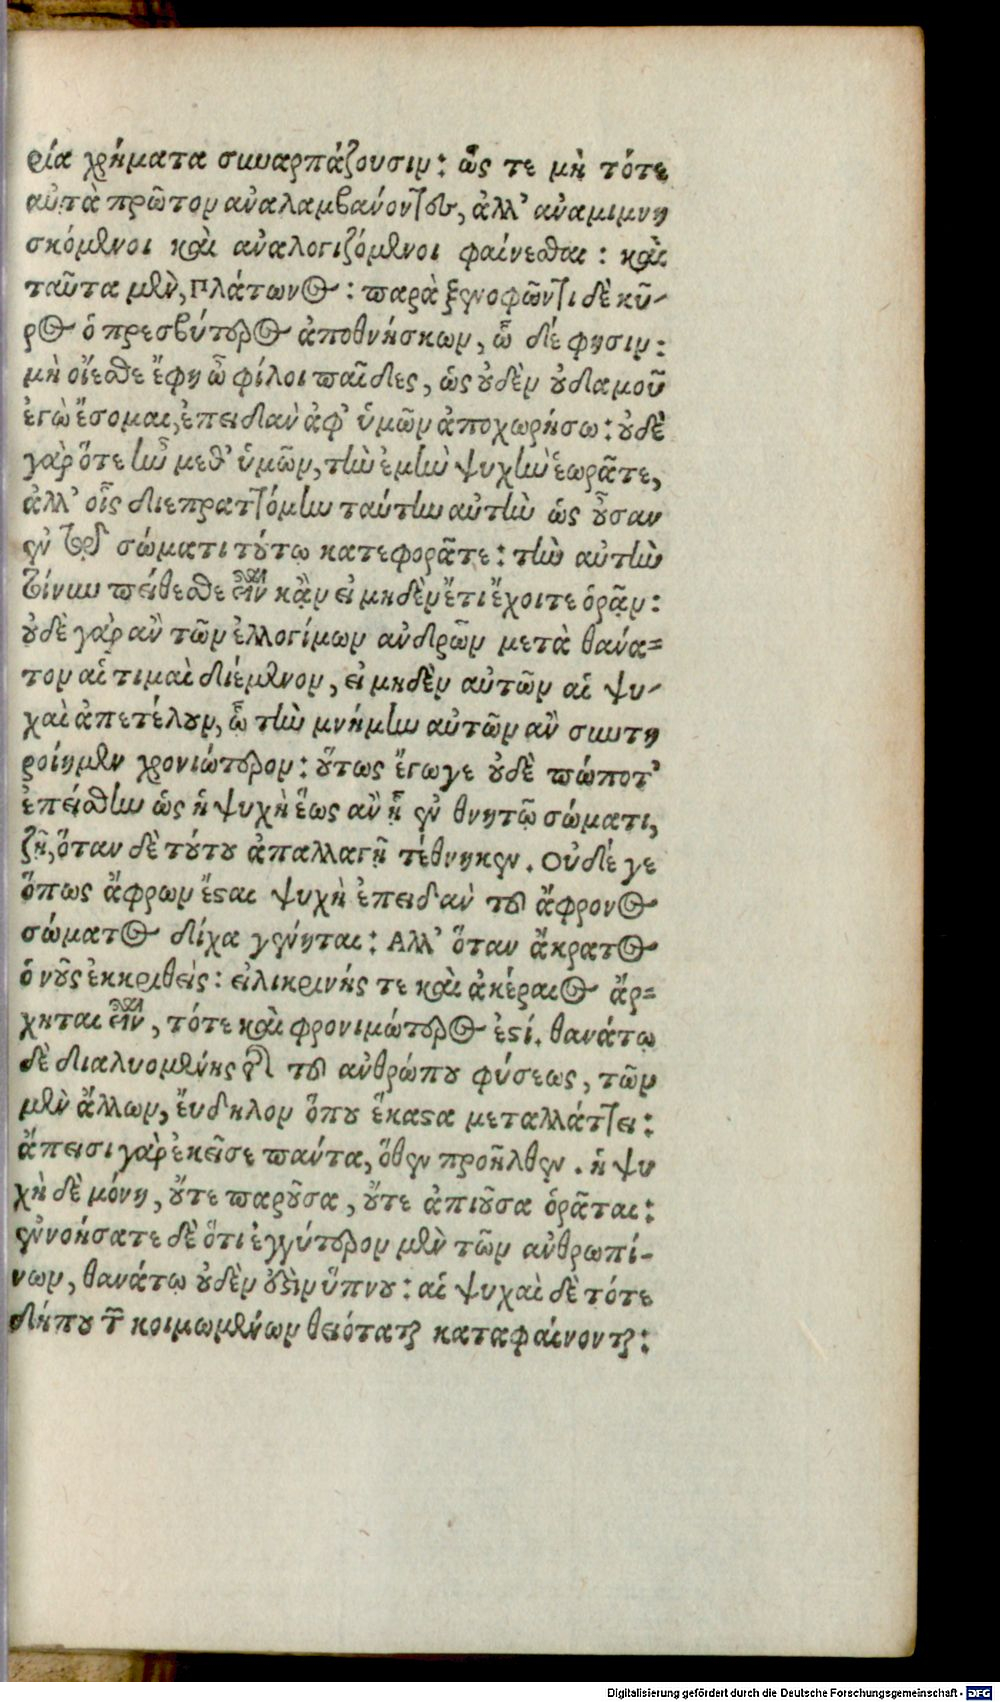 ρία χρήματα συναρπάζουσιν: ὥς τε μὴ τότε
αὐτὰ πρῶτον ἀναλαμβάνοντες, ἀλλ' ἀναμιμνη
σκόμενοι καὶ ἀναλογιζόμενοι φαίνεσθαι: καὶ
ταῦτα μὲν, Πλάτωνος: παρὰ ξενοφῶντι δὲ κῦ-
ρος ὁ πρεσβύτερος ἀποθνήσκων, ὧ δέ φησιν:
μὴ οἴεσθε ἔφη ὦ φίλοι παῖδες, ὡς οὐδὲν οὐδαμοῦ
ἐγὼ ἔσομαι, ἐπειδὰν ἀφ' ὑμῶν ἀποχωρήσω: οὐδὲ
γὰρ ὅτε ἦν μεθ' ὑμῶν, τὴν ἐμὴν ψυχὴν ἑωρᾶτε,
ἀλλ' οἷς διεπραττόμην ταύτην αὐτὴν ὡς οὖσαν
ἐν τῷ σώματι τούτῳ κατεφορᾶτε: τὴν αὐτὴν
τοίνυν πείθεσθε εἶναι κἂν εἰ μηδὲν ἔτι ἔχοιτε ὁρᾷν:
οὐδὲ γὰρ ἂν τῶν ἐλλογίμων ἀνδρῶν μετὰ θάνα=
τον αἱ τιμαὶ διέμενον, εἰ μηδὲν αὐτῶν αἱ ψυ-
χαὶ ἀπετέλουν, ὧ τὴν μνήμην αὐτῶν ἂν συντη
ροίημεν χρονιώτερον: οὕτως ἔγωγε οὐδὲ πώποτ'
ἐπείσθην ὡς ἡ ψυχὴ ἕως ἂν ᾖ ἐν θνητῷ σώματι,
ζῇ, ὅταν δὲ τούτου ἀπαλλαγῇ τέθνηκεν. Οὐδέ γε
ὅπως ἄφρων ἔσται ψυχὴ ἐπειδὰν τοῦ ἄφρονος
σώματος δίχα γένηται: Ἀλλ' ὅταν ἄκρατος
ὁ νοῦς ἐκκριθεὶς: εἰλικρινής τε καὶ ἀκέραιος ἄρ=
χηται εἶναι, τότε καὶ φρονιμώτερος ἐστί. θανάτῳ
δὲ διαλυομένης τῆς τοῦ ἀνθρώπου φύσεως, τῶν
μὲν ἄλλων, ἔυδηλον ὅπου ἕκαστα μεταλλάττει:
ἄπεισι γὰρ ἐκεῖσε πάντα, ὅθεν προῆλθεν. ἡ ψυ
χὴ δὲ μόνη, οὔτε παροῦσα, οὔτε ἀπιοῦσα ὁρᾶται:
ἐννοήσατε δὲ ὅτι ἐγγύτερον μὲν τῶν ἀνθρωπί-
νων, θανάτῳ οὐδὲν ἐστὶν ὕπνου: αἱ ψυχαὶ δὲ τότε
δήπου τῶν κοιμωμένων θειόταται καταφαίνονται:
Digitalisierung gefördert durch die Deutsche Forschungsgemeinschaft - DFG